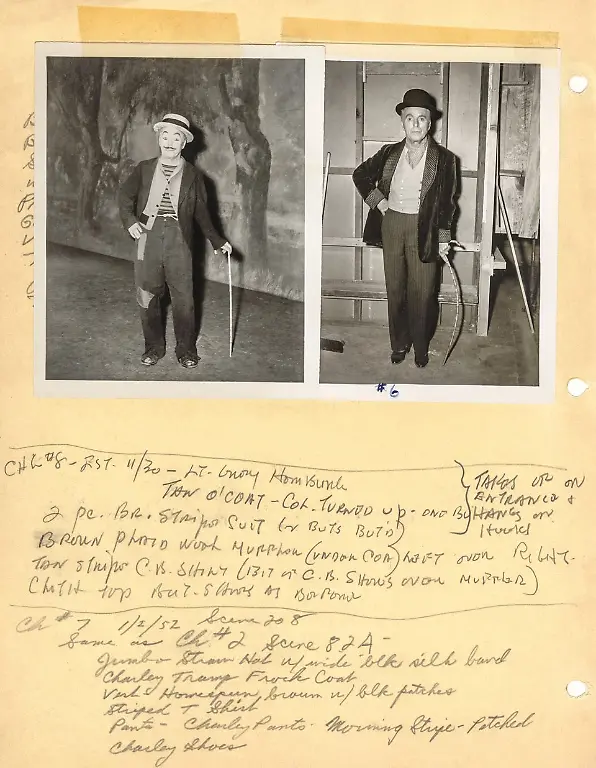 #6
CHG #8 - EST. 11/30 - LT. GREY HOMBURG
TAN O'COAT - COL. TURNED UP - ONE BU
TAKES OFF ON
ENTRANCE &
HANGS ON
HOOK
2 PC. BR. STRIPE SUIT (2 BUTS BUT'D)
BROWN PLAID WOOL MUFFLER (UNDER COA) LEFT OVER RIGHT-
TAN STRIPE C.B. SHIRT ( OF C.B. SHOWS OVER MUFFLER)
TOP BUT. SHOWS AS BEFORE
Ch #7 1/2/52 Scene 208
Same as Ch #2 Scene 82A -
Jumbo Straw Hat w/ wide blk silk band
Charley Tramp Frock Coat
Vest - Homespun, brown w/ blk patches
Striped T Shirt
Pants - Charley Pants - Morning Stripe - Patched
Charley Shoes